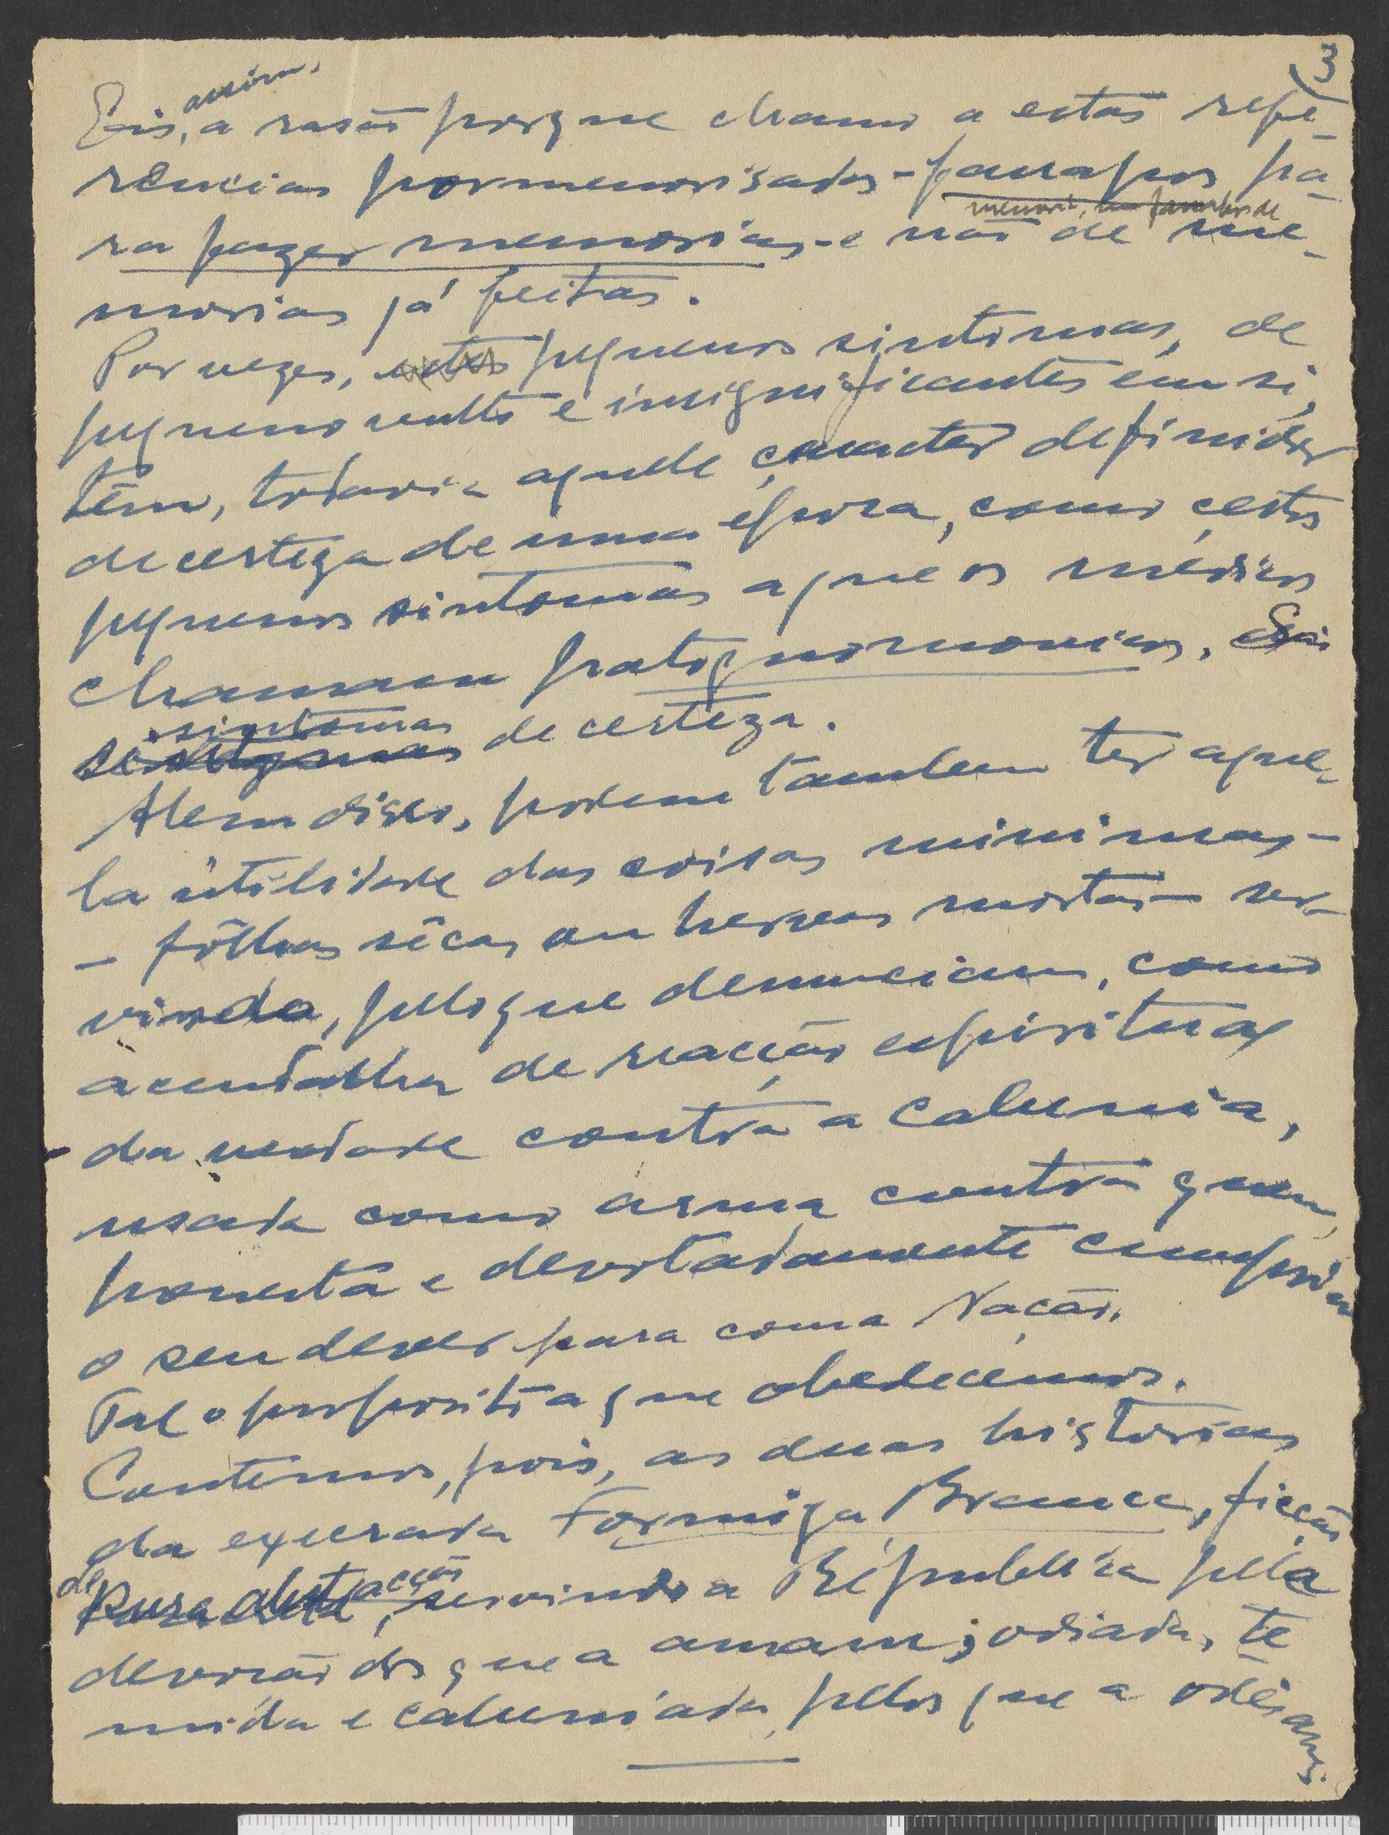 3
assim,
Eis, a rasão porque chamo a estas refe-
rencias pormenorisadas - farrapos pa-
ra fazer memorias - e não de me-
morias já feitas.
Por vezes, estes pequenos sintomas, de
pequeno vulto e insignificantes em si,
têm, todavia aquele caracter definidor
de certeza de uma época, como certos
pequenos sintomas a que os médicos
chamam patognomonicos. São
sintomas
de certeza.
Alem disso, podem tambem ter aque-
la utilidade das coisas minimas -
- fôlhas sêcas ou hervas mortas - ser-
vindo, pelo que denunciam, como
acendalha de reacção espiritual
da verdade contra a calunia,
usada como arma contra quem,
honesta e devotadamente cumpriu
o seu dever para com a Nação.
Tal o proposito a que obedecemos.
Contemos, pois, as duas historias
da execrada Formiga Branca, ficção
de pura abstracção, servindo a República pela
devoção dos que a amam; odiada, te-
mida e caluniada pelos que a odeiam.